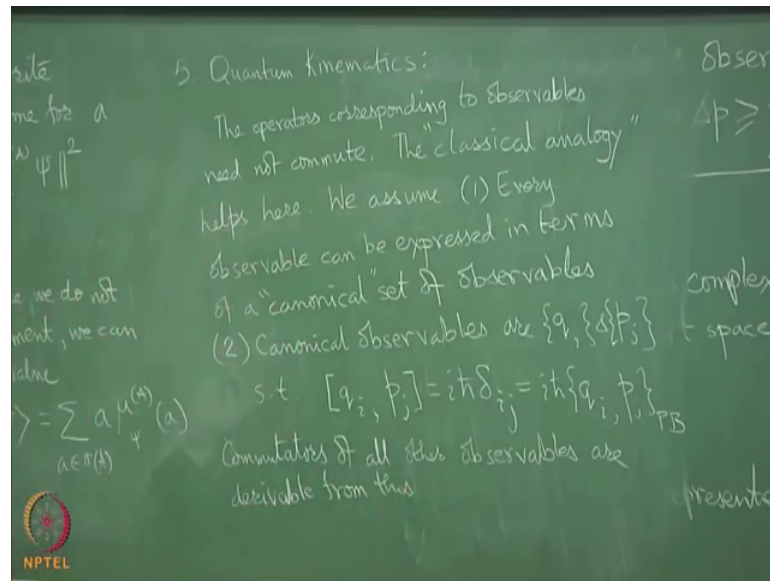 rite
me for a
ψ||²
e we do not
ment, we can
alue
> = ∑ a μ_ψ^(A) (a)
a∈σ(A)
5. Quantum Kinematics:
The operators corresponding to observables
need not commute. The "classical analogy"
helps here. We assume (1) Every
observable can be expressed in terms
of a "canonical" set of observables
(2) Canonical observables are {q_i} & {p_j}
s.t. [q_i, p_j] = iħδ_ij = iħ{q_i, p_j}_PB
Commutators of all other observables are
derivable from this
obser
Δp ≥
complex
t space
presenta
NPTEL